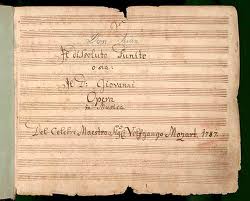 Don Juan
Il dissoluto Punito
o sia:
Il D: Giovanni
Opera
in Musica
Del Celebre Maestro Sig: Wolfgango Mozart, 1787.